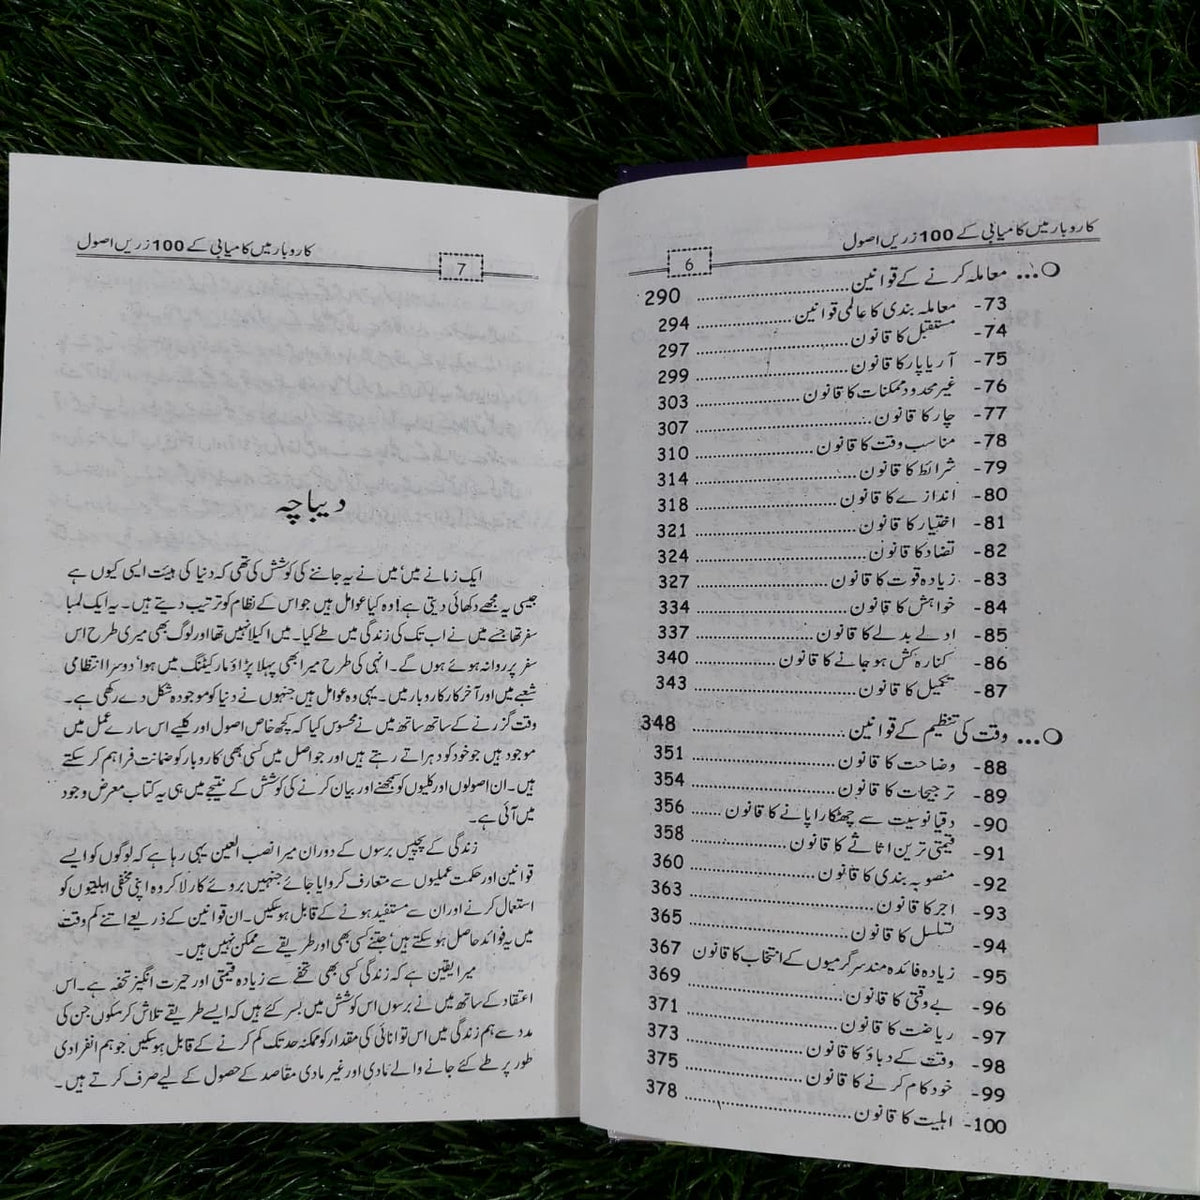 کاروبار میں کامیابی کے 100 زریں اصول
6
○... معاملہ کرنے کے قوانین ........ 290
73- معاملہ بندی کا عالمی قوانین ........ 294
74- مستقبل کا قانون ........ 297
75- آر یا پار کا قانون ........ 299
76- غیر محدود ممکنات کا قانون ........ 303
77- چار کا قانون ........ 307
78- مناسب وقت کا قانون ........ 310
79- شرائط کا قانون ........ 314
80- اندازے کا قانون ........ 318
81- اختیار کا قانون ........ 321
82- تضاد کا قانون ........ 324
83- زیادہ قوت کا قانون ........ 327
84- خواہش کا قانون ........ 334
85- ادلے بدلے کا قانون ........ 337
86- کنارہ کش ہو جانے کا قانون ........ 340
87- تکمیل کا قانون ........ 343
○... وقت کی تنظیم کے قوانین ........ 348
88- وضاحت کا قانون ........ 351
89- ترجیحات کا قانون ........ 354
90- دقیانوسیت سے چھٹکارا پانے کا قانون ...... 356
91- قیمتی ترین اثاثے کا قانون ........ 358
92- منصوبہ بندی کا قانون ........ 360
93- اجر کا قانون ........ 363
94- تسلسل کا قانون ........ 365
95- زیادہ فائدہ مند سرگرمیوں کے انتخاب کا قانون 367
96- بے وقتی کا قانون ........ 369
97- ریاضت کا قانون ........ 371
98- وقت کے دباؤ کا قانون ........ 373
99- خود کام کرنے کا قانون ........ 375
100- اہلیت کا قانون ........ 378
کاروبار میں کامیابی کے 100 زریں اصول
7
دیباچہ
ایک زمانے میں' میں نے یہ جاننے کی کوشش کی تھی کہ دنیا کی ہیئت ایسی کیوں ہے
جیسی یہ مجھے دکھائی دیتی ہے! وہ کیا عوامل ہیں جو اس کے نظام کو ترتیب دیتے ہیں۔ یہ ایک لمبا
سفر تھا جسے میں نے اب تک کی زندگی میں طے کیا۔ میں اکیلا نہیں تھا اور لوگ بھی میری طرح اس
سفر پر روانہ ہوئے ہوں گے۔ انہی کی طرح میرا بھی پہلا پڑاؤ مارکیٹنگ میں ہوا' دوسرا انتظامی
شعبے میں اور آخر کار کاروبار میں۔ یہی وہ عوامل ہیں جنہوں نے دنیا کو موجودہ شکل دے رکھی ہے۔
وقت گزرنے کے ساتھ ساتھ میں نے محسوس کیا کہ کچھ خاص اصول اور کلیے اس سارے عمل میں
موجود ہیں جو خود کو دہراتے رہتے ہیں اور جو اصل میں کسی بھی کاروبار کو ضمانت فراہم کر سکتے
ہیں۔ ان اصولوں اور کلیوں کو سمجھنے اور بیان کرنے کی کوشش کے نتیجے میں ہی یہ کتاب معرض وجود
میں آئی ہے۔
زندگی کے پچیس برسوں کے دوران میرا نصب العین یہی رہا ہے کہ لوگوں کو ایسے
قوانین اور حکمت عملیوں سے متعارف کروایا جائے جنہیں بروئے کار لا کر وہ اپنی مخفی اہلیتوں کو
استعمال کرنے اور ان سے مستفید ہونے کے قابل ہو سکیں۔ ان قوانین کے ذریعے اتنے کم وقت
میں یہ فوائد حاصل ہو سکتے ہیں' جتنے کسی بھی اور طریقے سے ممکن نہیں ہیں۔
میرا یقین ہے کہ زندگی کسی بھی تحفے سے زیادہ قیمتی اور حیرت انگیز تحفہ ہے۔ اس
اعتقاد کے ساتھ میں نے برسوں اس کوشش میں بسر کئے ہیں کہ ایسے طریقے تلاش کر سکوں جن کی
مدد سے ہم زندگی میں اس توانائی کی مقدار کو ممکنہ حد تک کم کرنے کے قابل ہو سکیں جو ہم انفرادی
طور پر طے کئے جانے والے مادی اور غیر مادی مقاصد کے حصول کے لیے صرف کرتے ہیں۔